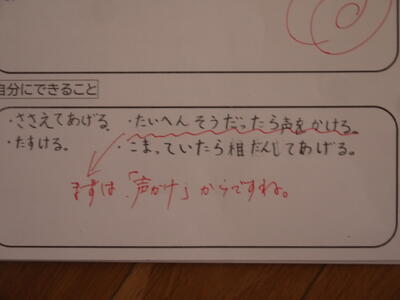 自分にできること
・ささえてあげる。
・たすける。
・たいへんそうだったら声をかける。
・こまっていたら相だんしてあげる。
まずは「声かけ」からですね。